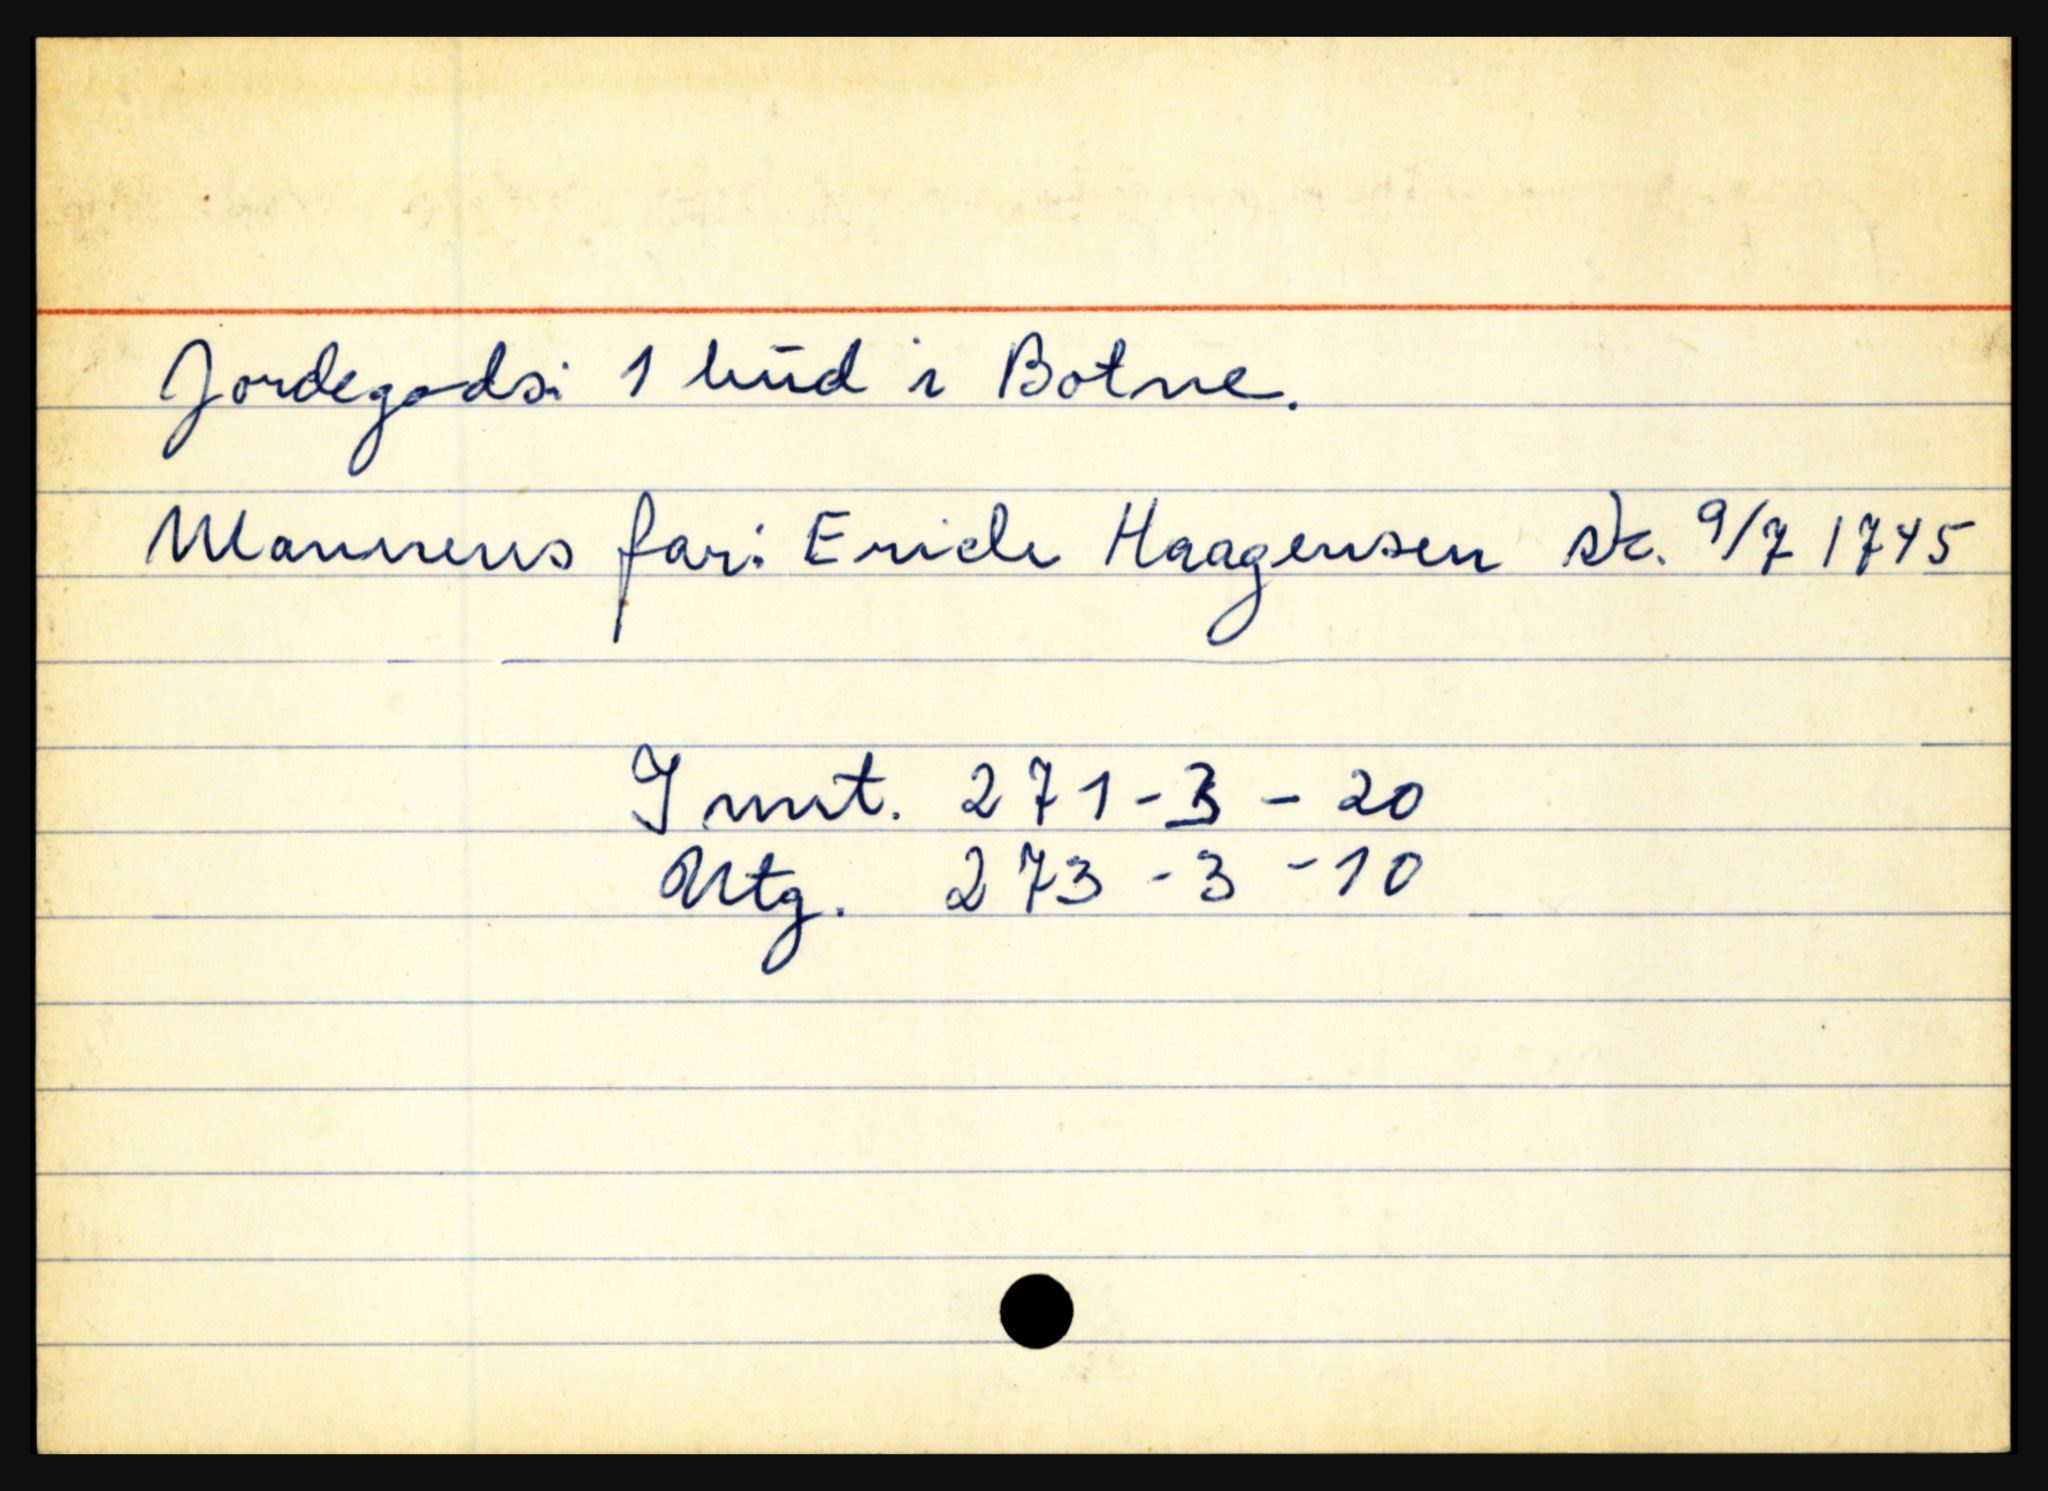 Jordegods: 1 hud i Botne.
Mannens far: Erich Haagensen sk. 9/7 1745
Innt. 271-3-20
Utg. 273-3-10